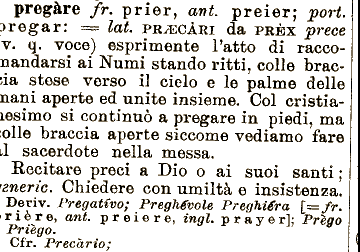 pregàre fr. prier, ant. preier; port.
pregar: = lat. PRÆCÀRI da PRÈX prece
(v. q. voce) esprimente l'atto di racco-
mandarsi ai Numi stando ritti, colle brac-
cia stese verso il cielo e le palme delle
mani aperte ed unite insieme. Col cristia-
nesimo si continuò a pregare in piedi, ma
colle braccia aperte siccome vediamo fare
al sacerdote nella messa.
Recitare preci a Dio o ai suoi santi;
generic. Chiedere con umiltà e insistenza.
Deriv. Pregatívo; Preghévole Preghiéra [= fr.
prière, ant. preiere, ingl. prayer]; Prègo
Priègo.
Cfr. Precàrio;